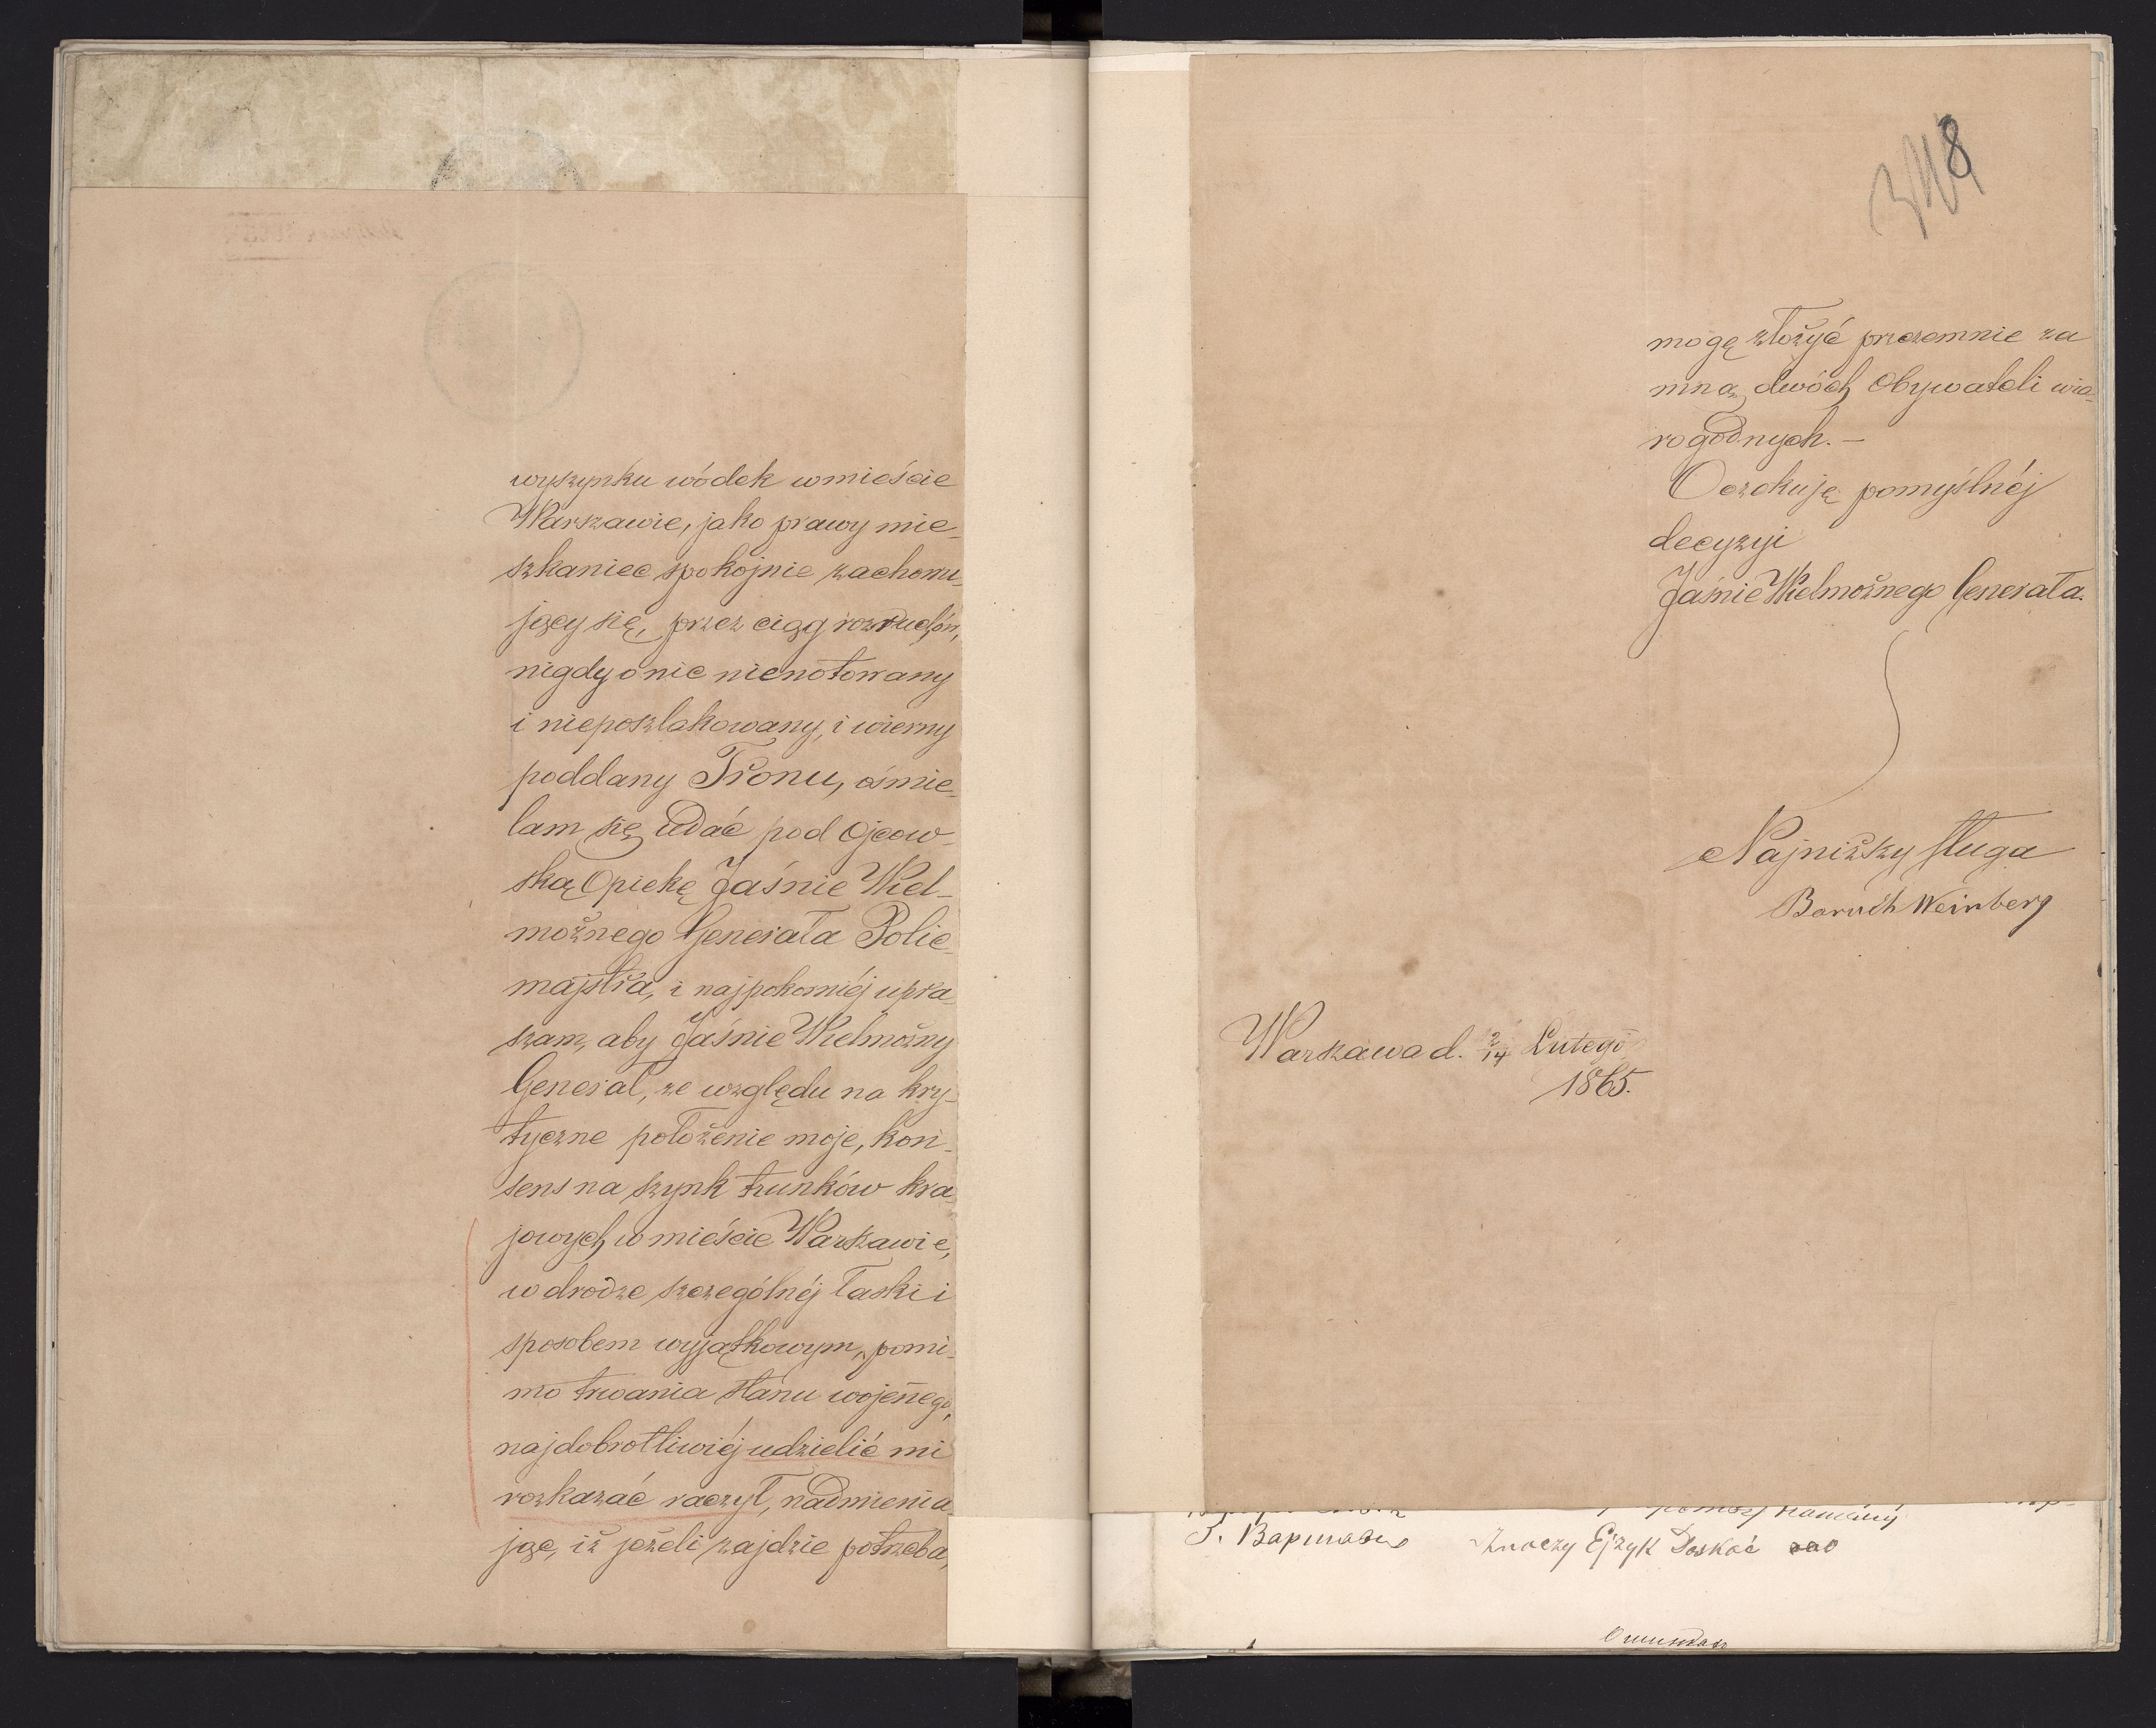 wyszynku wódek w mieście
Warszawie, jako prawy mie-
szkaniec spokojnie zachowu-
jący się, przez ciąg rozruchów,
nigdy o nic nienotowany
i nieposzlakowany, i wierny
poddany Tronu, ośmie-
lam się udać pod Ojcow-
ską Opiekę Jaśnie Wiel-
możnego Generała Polic-
majstra, i najpokorniéj upra-
szam, aby Jaśnie Wielmożny
Generał, ze względu na kry-
tyczne położenie moje, kon-
sens na szynk trunków kra-
jowych w mieście Warszawie,
w drodze szczególnéj łaski i
sposobem wyjątkowym, pomi-
mo trwania stanu wojennego,
najdobrotliwiéj udzielić mi
rozkazać raczył, nadmienia-
jąc, iż jeżeli zajdzie potrzeba,
8
mogę złożyć przezemnie za
mną dwóch Obywateli wia-
rogodnych. —
Oczekuję pomyślnéj
decyzyi
Jaśnie Wielmożnego Generała.
Najniższy sługa
Baruch Weinberg
Warszawa d. 2/14 Lutego
1865.
Г. Варшавѣ
Znaczy Ejzyk